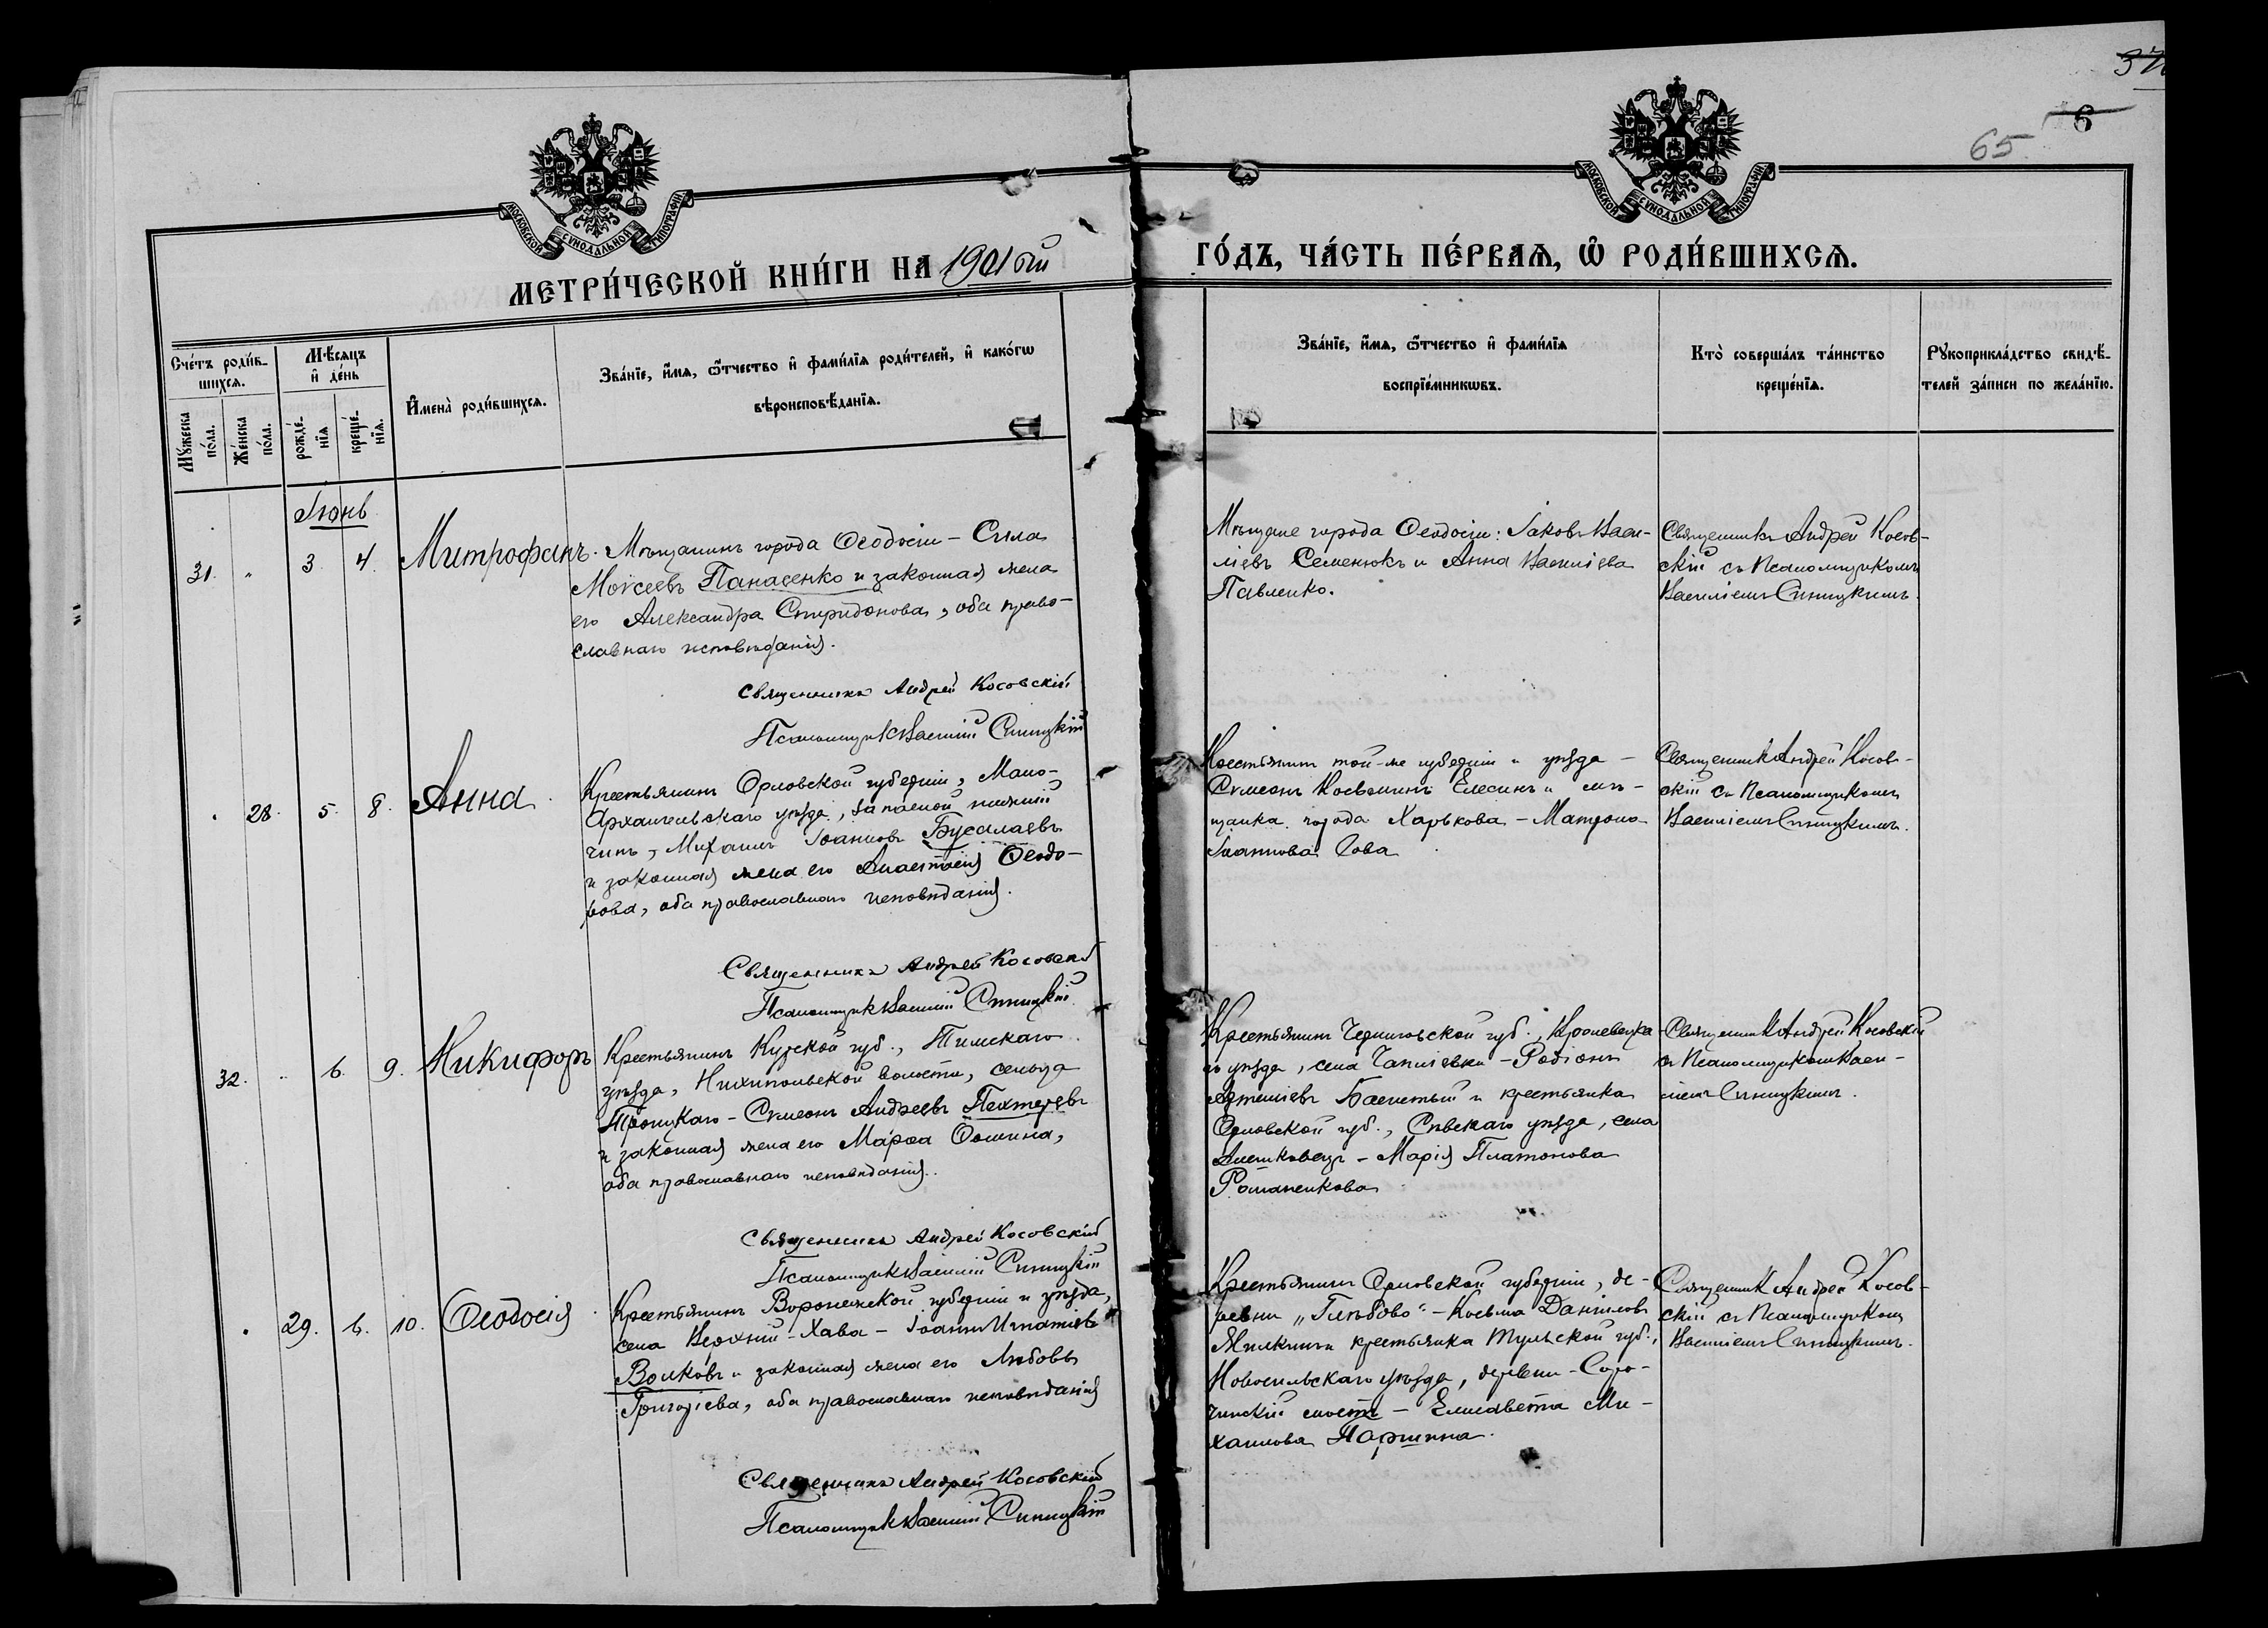 37
6
65
МОСКОВСКОЙ СѴНОДАЛЬНОЙ ТИПОГРАФІИ
МОСКОВСКОЙ СѴНОДАЛЬНОЙ ТИПОГРАФІИ
МЕТРИ́ЧЕСКОЙ КНИ́ГИ НА 1901ый
ГО́ДЪ, ЧА́СТЬ ПЕ́РВАѦ, Ѡ РОДИ́ВШИХСѦ.
Сче́тъ роди́в-
шихсѧ.
Мꙋжеска по́ла.
Же́нска по́ла.
Мѣ́сѧцъ
и҆ де́нь
рожде́-
нїѧ
креще́-
нїѧ.
И҆мена̀ роди́вшихсѧ.
Зва́нїе, и҆́мѧ, ѻ҆́тчество и҆ фами́лїѧ роди́телей, и҆ како́гѡ
вѣроисповѣ́данїѧ.
Зва́нїе, и҆́мѧ, ѻ҆́тчество и҆ фами́лїѧ
воспрїе́мникѡвъ.
Кто̀ соверша́лъ та́инство
креще́нїѧ.
Рꙋкоприкла́дство свидѣ́-
телей за́писи по жела́нїю.
Іюнь
31. " 3 4. Митрофанъ.
Мѣщанинъ города Ѳеодосіи – Сила
Моѵсеевъ Панасенко и законная жена
его Александра Спиридонова, оба право-
славнаго исповѣданія.
Священникъ Андрей Косовскій
Псаломщикъ Василій Синицкій
Мѣщане города Ѳеодосіи: Іаковъ Васи-
ліевъ Семенюкъ и Анна Василіева
Павленко.
Священникъ Андрей Косов-
скій съ Псаломщикомъ
Василіемъ Синицкимъ.
28. 5. 8. Анна.
Крестьянинъ Орловской губерніи, Мало-
Архангельскаго уѣзда, запасной нижній
чинъ, Михаилъ Іоанновъ Бусалаевъ
и законная жена его Анастасія Ѳеодо-
рова, оба православнаго исповѣданія.
Священникъ Андрей Косовскій
Псаломщикъ Василій Синицкій
Крестьянинъ той-же губерніи и уѣзда –
Сѵмеонъ Косьминъ Елесинъ и мѣ-
щанка города Харькова – Матрона
Іоаннова Сова
Священникъ Андрей Косов-
скій съ Псаломщикомъ
Василіемъ Синицкимъ.
32. " 6. 9. Никифоръ
Крестьянинъ Курской губ., Тимскаго
уѣзда, волости, сельца
Троицкаго – Сѵмеонъ Андреевъ Пехтеревъ
и законная жена его Марѳа Ѳомина,
оба православнаго исповѣданія.
Священникъ Андрей Косовскій
Псаломщикъ Василій Синицкій
Крестьянинъ Черниговской губ., Кролевецка-
го уѣзда, села Чапліевки – Родіонъ
и крестьянка
Орловской губ., Сѣвскаго уѣзда, села
– Марія Платонова
Романенкова
Священникъ Андрей Косовскій
съ Псаломщикомъ Васи-
ліемъ Синицкимъ.
29. 6. 10. Ѳеодосія.
Крестьянинъ Воронежской губерніи и уѣзда,
села Верхній-Хава – Іоаннъ Игнатіевъ
Волковъ и законная жена его Любовь
Григоріева, оба православнаго исповѣданія
Священникъ Андрей Косовскій
Псаломщикъ Василій Синицкій
Крестьянинъ Орловской губерніи, де-
ревни „Глѣбово" – Косьма Даніиловъ
и крестьянка Тульской губ.,
Новосильскаго уѣзда, деревни – Соро-
чинскій мостъ – Елисавета Ми-
хаилова Паршина.
Священникъ Андрей Косов-
скій съ Псаломщикомъ
Василіемъ Синицкимъ.